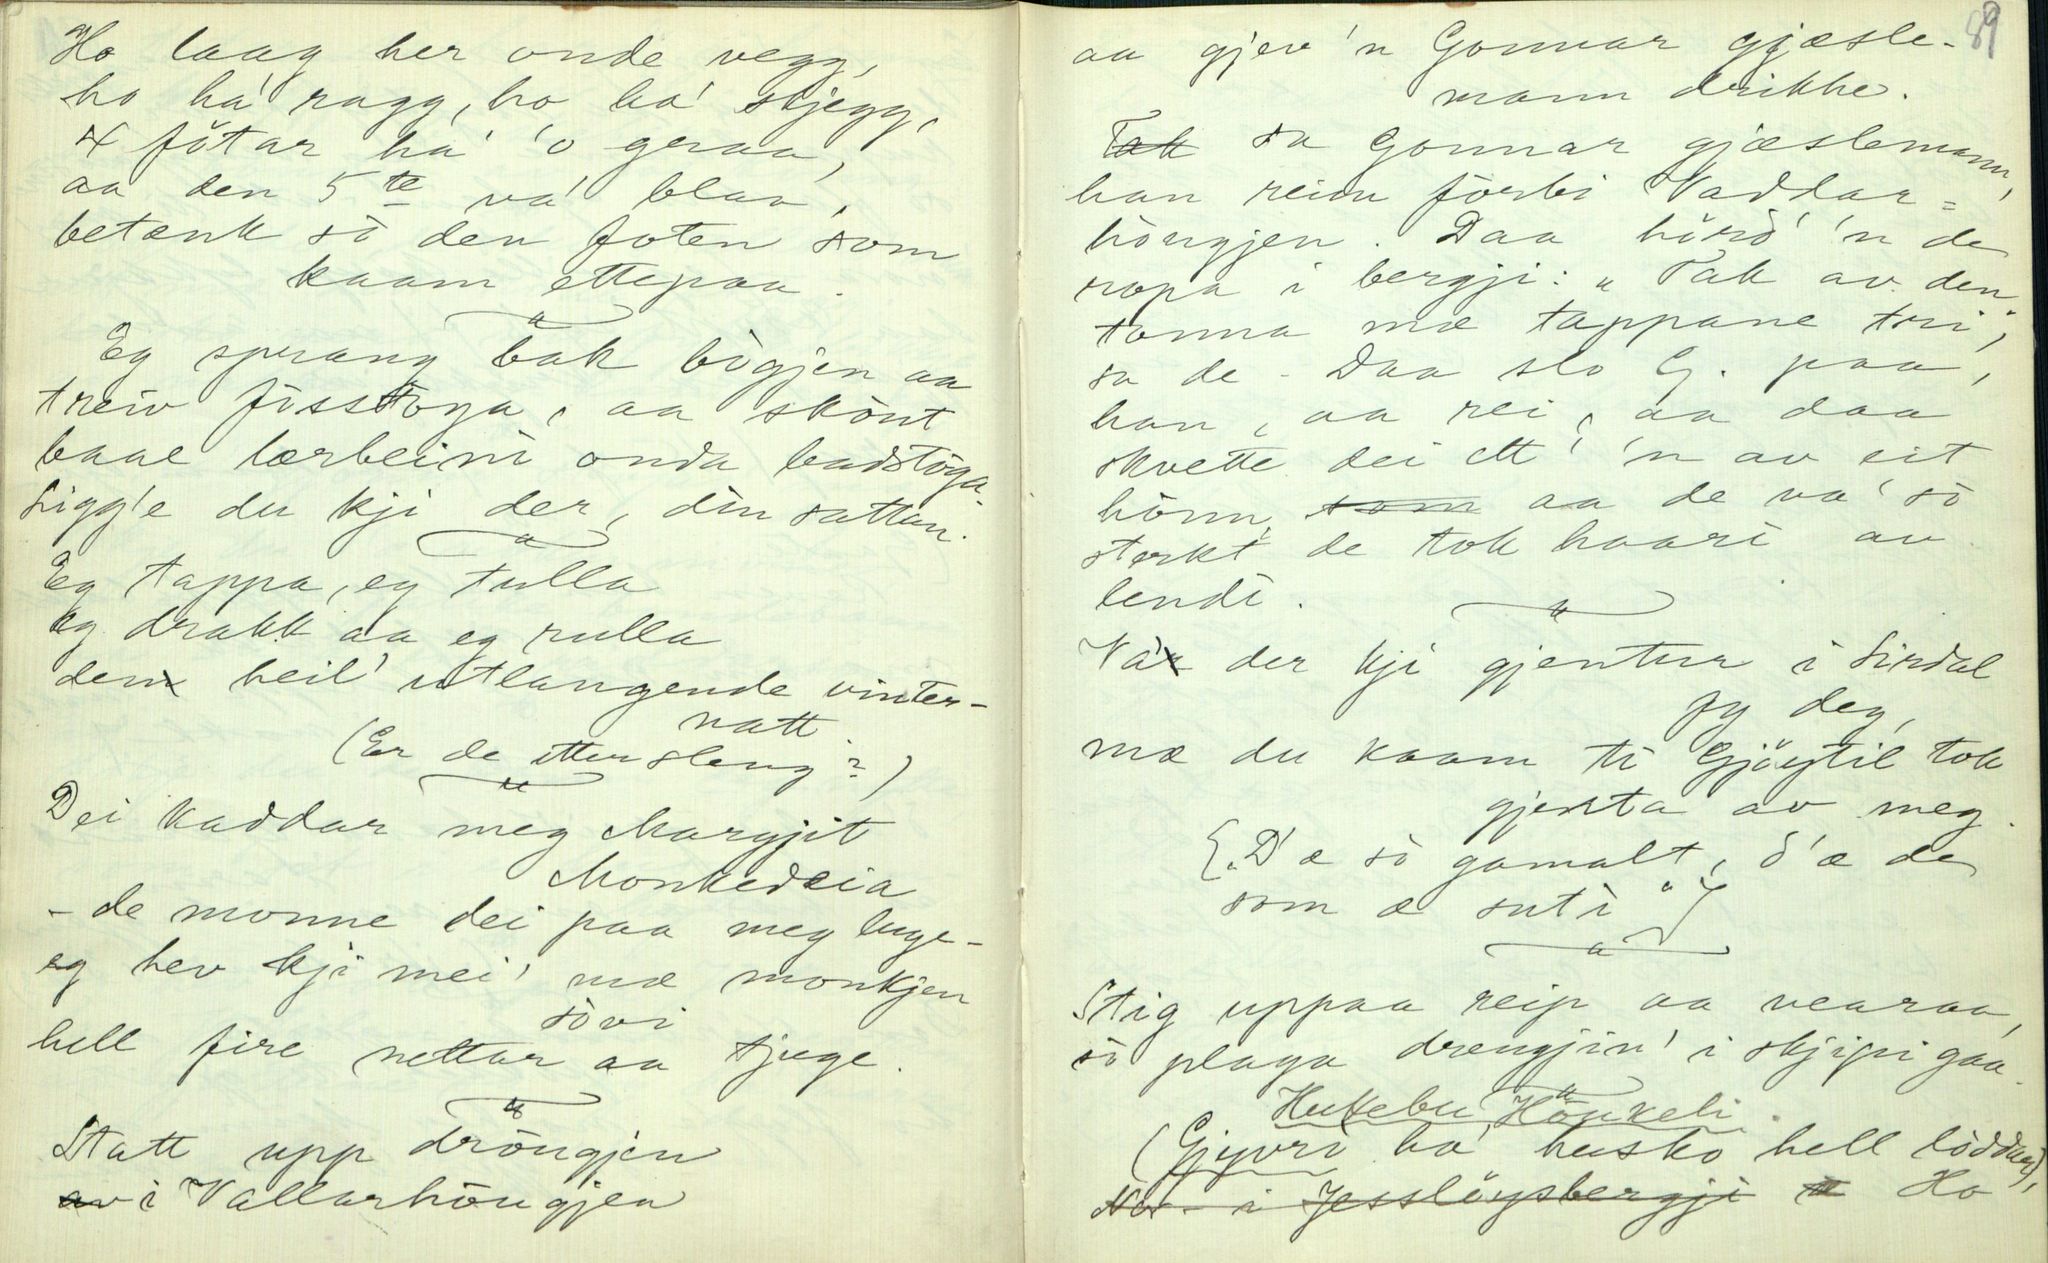 Ho laag her onde vegg,
ho ha' ragg, ho ha' skjegg,
4 fötar ha' 'o graa,
aa den 5te va' blaa,
betenk sò den foten som
kaam ettepaa.
"
Eg sprang bak bögjen aa
treiv fisstöga, aa skönt
baae lærbeini onda badstöga.
Ligg'e du kji der, din sattan.
"
Eg tappa, eg tulla
eg drakk aa eg rulla
den heil' utlangende vinter-
natt
(Er de ettersleng?)
"
Dei kaddar meg Margjit
Monkedeia
- de monne dei paa meg ljuge -
eg hev kji mei' mæ monkjen
sövi
hell fire nettar aa tjuge.
"
Statt upp dröngjen
av i Vallarhöugjen
89
aa gjev 'n Gonnar gjæsle-
mann drikke.
Tak sa Gonnar gjæslemann,
han reiv förbi Vaddar=
höugjen. Daa hörd' 'n de
ropa i bergji: "Tak av den
tonna mæ tappane tri",
sa de - Daa slo G. paa,
han, aa rei, aa daa
skvette dei ett' 'n av eit
hönn, som aa de va' sò
sterkt, de tok haari av
lendi.
"
Va'r der kji gjentur i Sirdal
fy deg,
mæ du kaam ti Gjöystil tok
gjenta av meg.
{"D'æ sò gamalt, d'æ de
som æ suti"}
"
Stig uppaa reip aa vearaa,
sò plaga drengjin' i skjipi gaa.
"
Hukebu Hönkeli.
(Gjyvri ha' husko hell löddun),
No - i Jesslöysbergji Ho